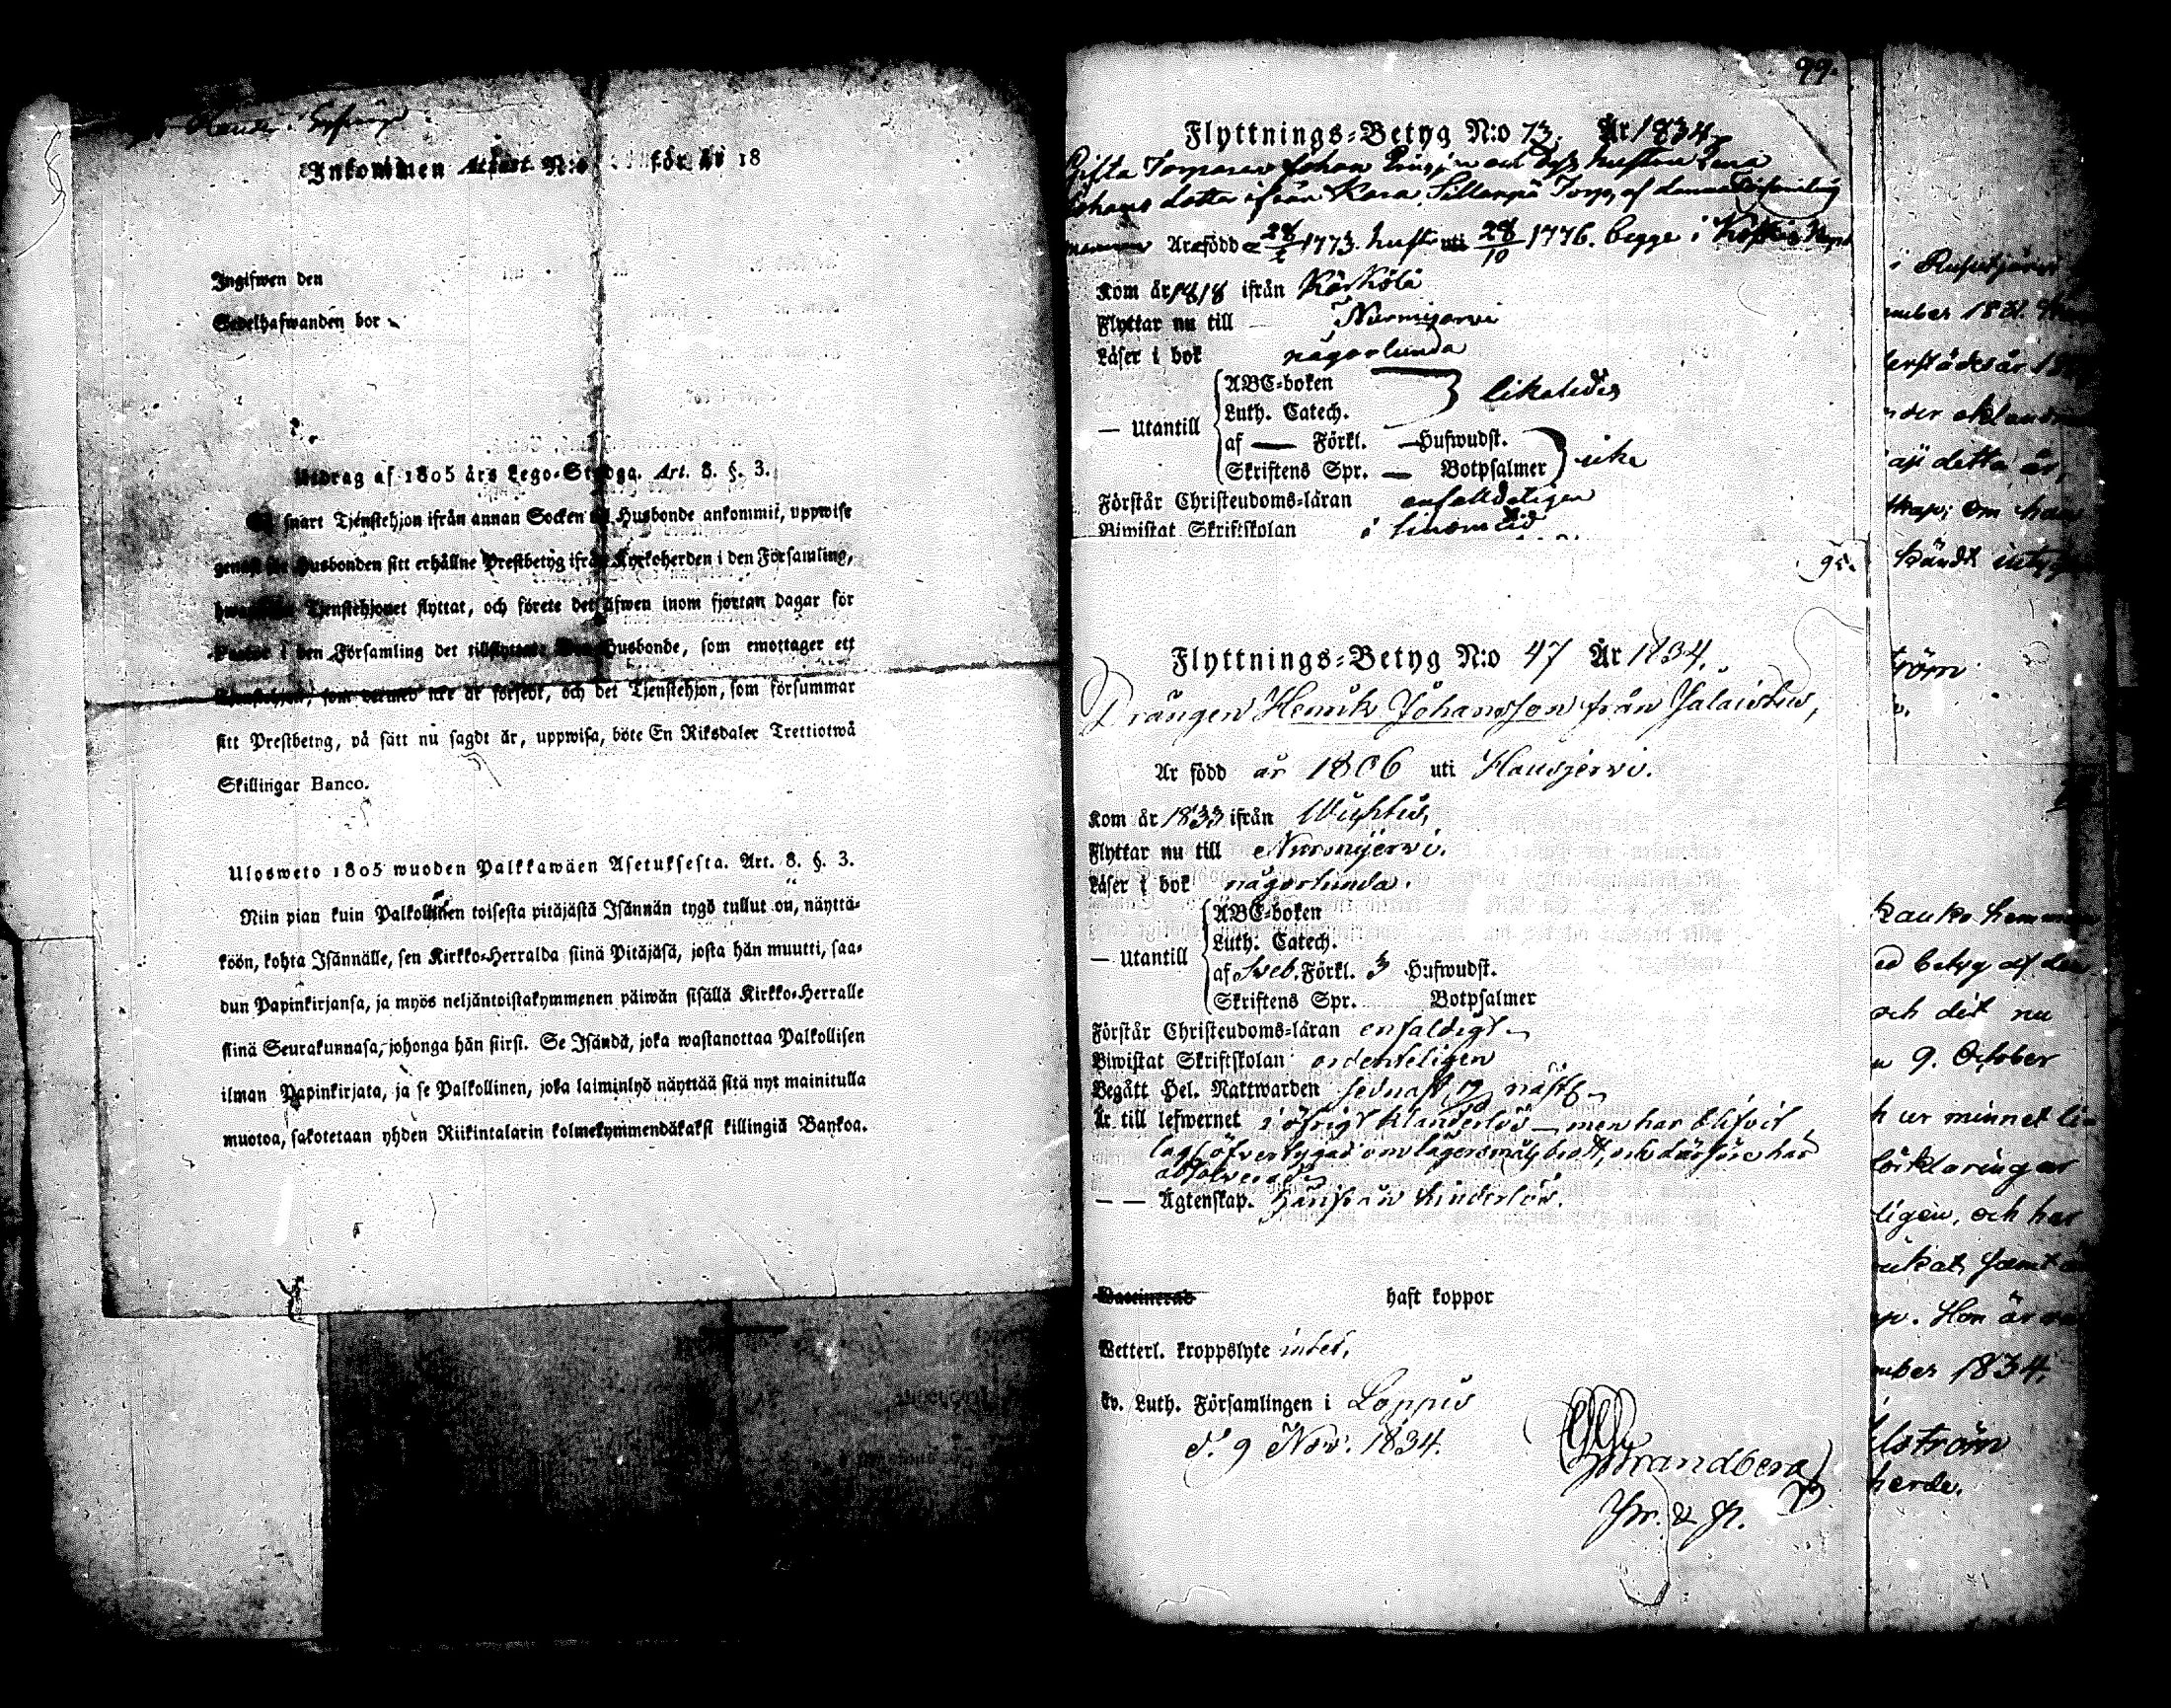 Inkommen Attest N:o för år 18
Ingifwen den
Sedelhafwanden bor
Utdrag af 1805 års Lego-Stadga. Art. 8. §. 3.
snart Tjenstehjon ifrån annan Socken til Husbonde ankommit, uppwise
genast för Husbonden sitt erhållne Prestbetyg ifrån Kyrkoherden i den Församling,
Tjenstehjonet flyttat, och förete det äfwen inom fjortan dagar för
Pastor i den Församling det tillflyttat. Den Husbonde, som emottager ett
Tjenstehjon, som dermed icke är försedt, och det Tjenstehjon, som försummar
sitt Prestbetyg, på sätt nu sagdt är, uppwisa, böte En Riksdaler Trettiotwå
Skillingar Banco.
Ulosweto 1805 wuoden Palkkawäen Asetuksesta. Art. 8. §. 3.
Niin pian kuin Palkollinen toisesta pitäjästä Isännän tygö tullut on, näyttä-
köön, kohta Isännälle, sen Kirkko-Herralda siinä Pitäjäsä, josta hän muutti, saa-
dun Papinkirjansa, ja myös neljäntoistakymmenen päiwän sisällä Kirkko-Herralle
siinä Seurakunnasa, johonga hän siirsi. Se Isändä, joka wastanottaa Palkollisen
ilman Papinkirjata, ja se Palkollinen, joka laiminlyö näyttää sitä nyt mainitulla
muotoa, sakotetaan yhden Riikintalarin kolmekymmendäkaksi killingiä Bankoa.
99.
Flyttnings-Betyg N:o 73. År 1834
Gifta Torparen Johan och dess hustru Lena
Johans dotter ifrån Kara, Sillanpä Torp, af denna Församling
Är född 28 1773. hustr uti 28/10 1776. begge i
Kom år 1818 ifrån Kärkölä
Flyttar nu till Nurmijärvi
Läser i bok någorlunda
— Utantill
ABC-boken
Luth. Catech. likaledes
af — Förkl. — Hufwudst.
Skriftens Spr. — Botpsalmer icke
Förstår Christendoms-läran enfalldeligen
Biwistat Skriftskolan i sinom tid
95.
Flyttnings-Betyg N:o 47 År 1834.
Drängen Henrik Johansson från Jalaistus,
Är född år 1806 uti Hausjerwi.
Kom år 1833 ifrån Wichtis,
Flyttar nu till Nurmijerwi.
Läser i bok någorlunda.
— Utantill
ABC-boken
Luth. Catech.
af Sveb. Förkl. 3 Hufwudst.
Skriftens Spr. Botpsalmer
Förstår Christendoms-läran enfaldigt
Biwistat Skriftskolan ordenteligen
Begått Hel. Nattwarden sednast
Är till lefwernet i öfrigt klanderlös — men har blifvit
lagl öfvertygad om lägersmåls brott, och därföre har
absolverad
— — Ägtenskap. härifrån hinderlös.
Waccinerad haft koppor
Wetterl. kroppslyte intet,
Ev. Luth. Församlingen i Loppis
d. 9 Nov. 1834.
Strandberg
i
mber 1831.
detta år,
om han
kändt
röm
hemman
betyg af den
och dit nu
9. October
h ur minnet
förklaringar
ligen, och har
samt
Hon är
mber 1834.
lström
herde.